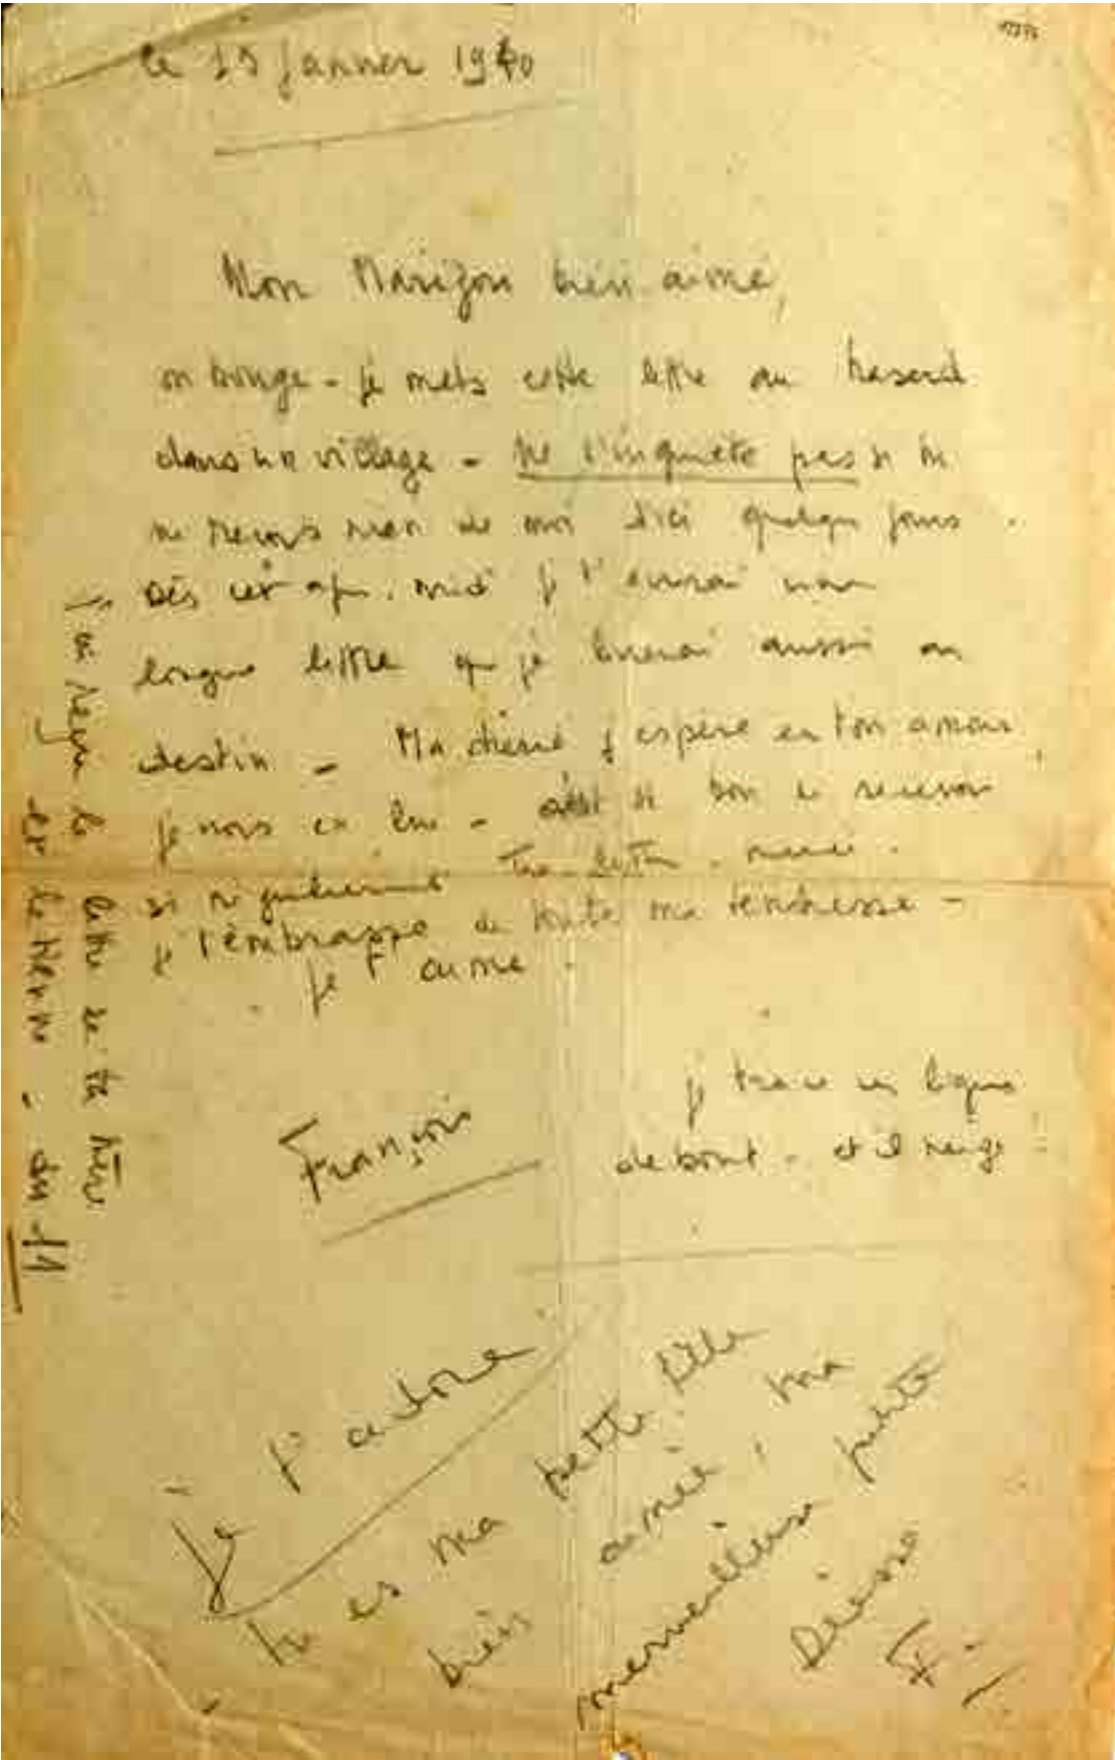 le 15 Janvier 1940
Mon Marizou bien-aimé,
on bouge - je mets cette lettre au hasard
dans un village - Ne t'inquiète pas si tu
ne reçois rien de moi d'ici quelques jours.
Dès cet apr. midi je t'enverrai une
longue lettre que je livrerai aussi au
destin - Ma chérie j'espère en ton amour,
je crois en lui - c'est si bon de recevoir
si régulièrement tes lettres. merci.
je t'embrasse de toute ma tendresse -
je t'aime.
François
je trace ces lignes
debout - et il neige
J'ai reçu la lettre de ta mère
et la tienne - du 11
Je t'adore
tu es ma petite fille
bien aimée, ma
merveilleuse petite
Déesse
F-